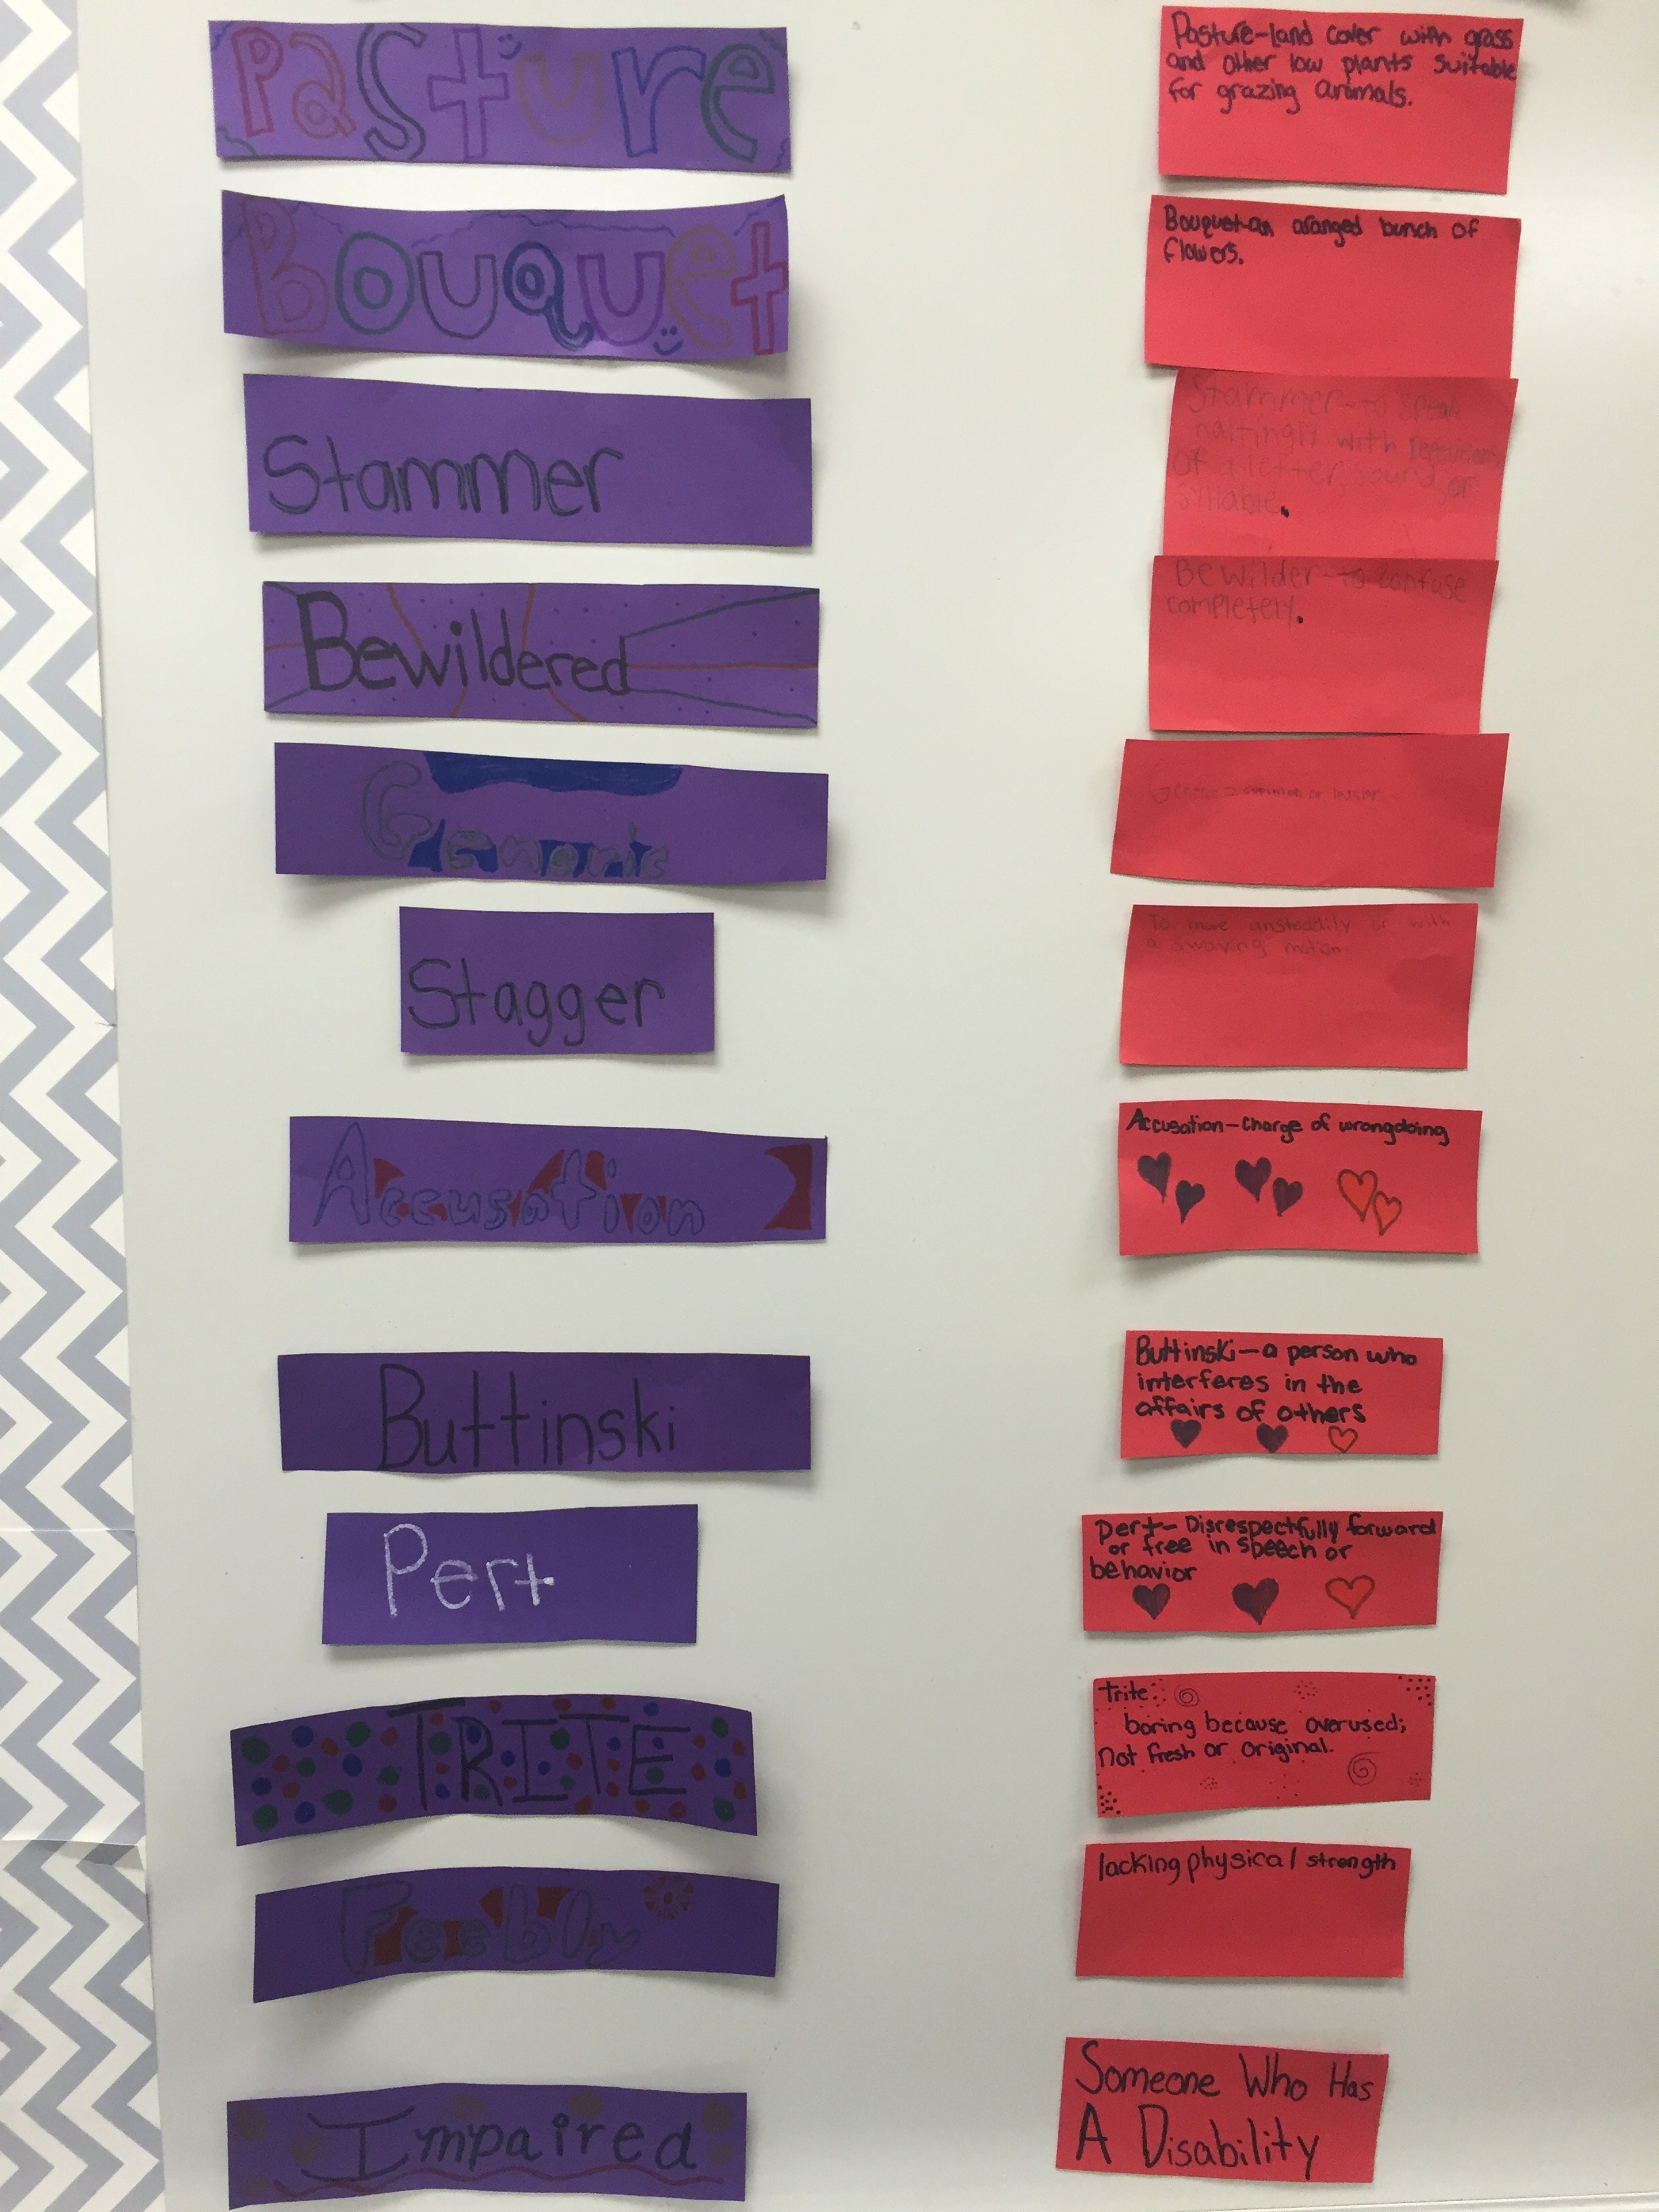 Pasture
Pasture-land cover with grass
and other low plants suitable
for grazing animals.
Bouquet
Bouquet-an aranged bunch of
flowers.
Stammer
Stammer-to speak
haltingly with
of a letter, sound, or
sillable.
Bewildered
Bewilder-to confuse
completely.
Generic
common or
Stagger
To move unsteadily or with
a swaying motion.
Accusation
Accusation-Charge of wrongdoing
Buttinski
Buttinski-a person who
interferes in the
affairs of others
Pert
pert-Disrespectfully forward
or free in speech or
behavior
TRITE
Trite:
boring because overused;
not fresh or original.
Feebly
lacking physical strength
Impaired
Someone Who Has
A Disability